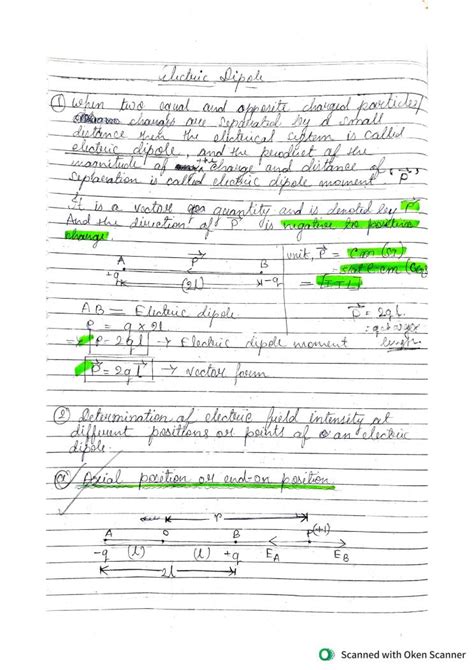 Electric Dipole
① When two equal and opposite charged particles/
charges are separated by a small
distance then the electrical system is called
electric dipole, and the product of the
magnitude of charge and distance of
separation is called electric dipole moment P
It is a vector quantity and is denoted by P
And the direction of P is negative to positive
charge.
A P B
+q (2l) -q
unit, P = Cm (SI)
= [ITL]
AB = Electric dipole.
P = q × 2l
P = 2ql → Electric dipole moment
P = 2ql → vector form
P = 2ql
② Determination of electric field intensity at
different positions or points of an electric
dipole.
ⓐ Axial position or end-on position
r
A O B P(+1)
-q (l) (l) +q E_A E_B
2l
Scanned with Oken Scanner